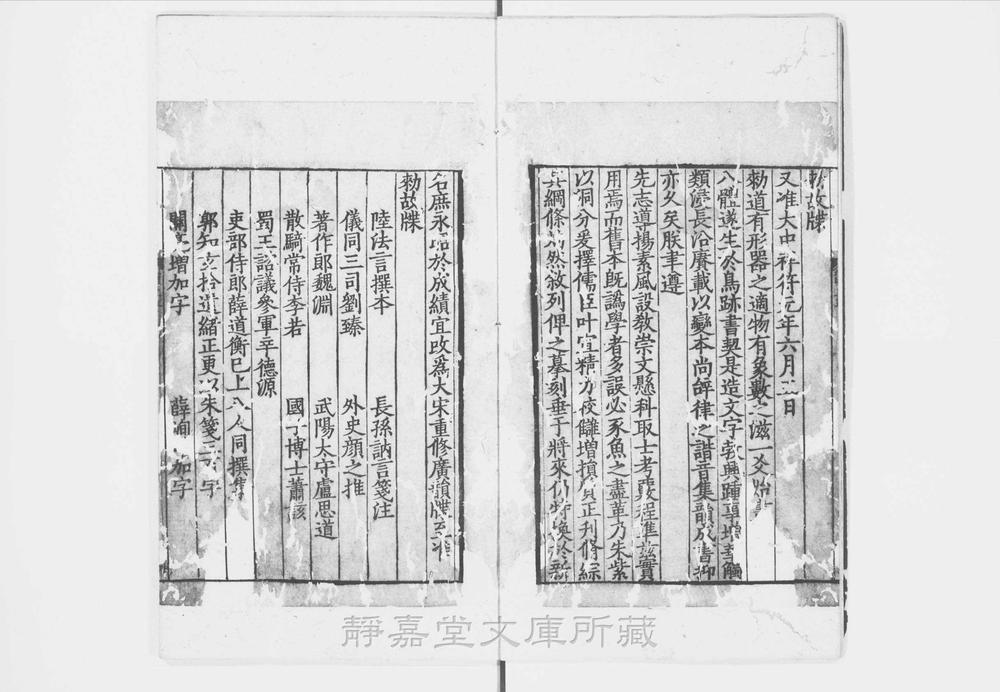 勑故牒
又准大中祥符元年六月五日
勑道有形器之適物有象數之滋一爻始畫
八體遂生於鳥跡書契是造文字勃興踵事增華觸
類變長沿賡載以變本尚辞律之諧音集韻成書抑
亦久矣朕聿遵
先志導揚素風設敎崇文懸科取士考覈程準兹實
用焉而舊本旣譌學者多誤必豕魚之盡革乃朱紫
以洞分爰擇儒臣叶宣精力校讎增損質正刊修綜
其綱條灼然敘列俾之摹刻垂于將來仍特換於新
名庶永昭於成績宜改爲大宋重修廣韻牒至准
勑故牒
陸法言撰本 長孫訥言箋注
儀同三司劉臻 外史顏之推
著作郎魏淵 武陽太守盧思道
散騎常侍李若 國子博士蕭該
蜀王諮議參軍辛德源
吏部侍郎薛道衡已上八人同撰集
郭知玄拾遺緒正更以朱箋三百字
關亮增加字 薛峋 加字
靜嘉堂文庫所藏